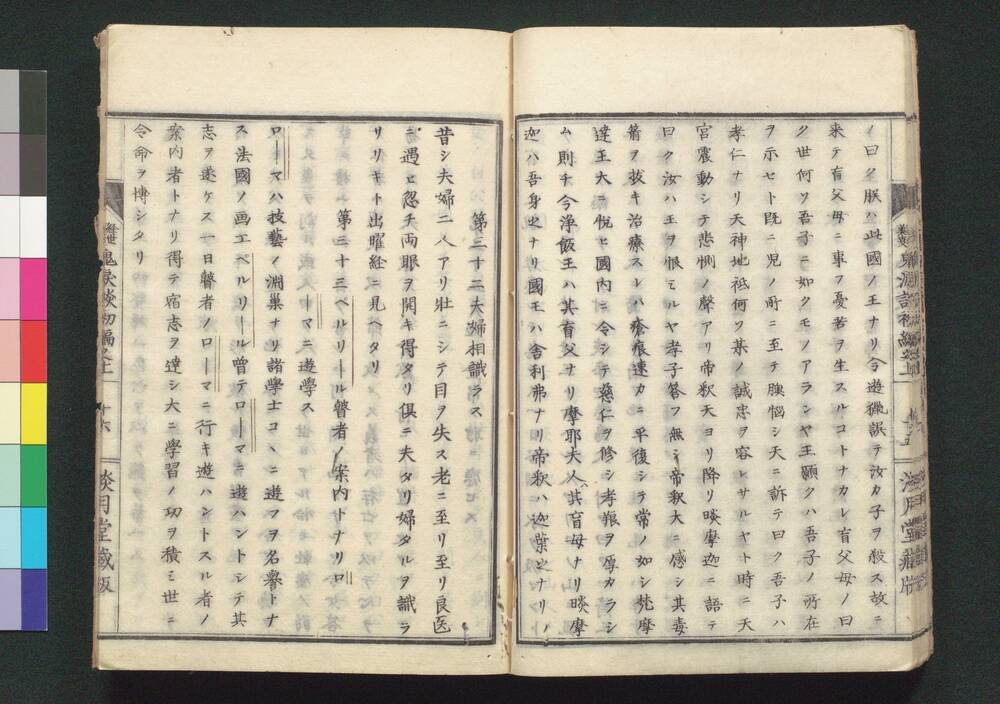 ノ曰ク朕ハ此國ノ王ナリ今遊獵誤テ汝カ子ヲ殺ス故ニ
来テ盲父母ニ事フ憂苦ヲ生スルコトナカレ盲父母ノ曰
ク世何ソ吾子ニ如クモノアランヤ王願クハ吾子ノ所在
ヲ示セト既ニ児ノ所ニ至テ懊悩シ天ニ訴テ曰ク吾子ハ
孝仁ナリ天神地祗何ソ某ノ誠忠ヲ容レサルヤト時ニ天
宮震動シテ悲惻ノ聲アリ帝釈天ヨリ降リ睒摩迦ニ語テ
曰ク汝ハ王ヲ恨ミルヤ孝子答フ無シ帝釈大ニ感シ其毒
箭ヲ抜キ治療スレハ瘡痕速カニ平復シテ常ノ如シ梵摩
達王大ニ悦ヒ國内ニ令シテ慈仁ヲ修シ孝報ヲ厚カラシ
ム則チ今浄飯王ハ其盲父ナリ摩耶夫人ハ其盲母ナリ睒摩
迦ハ吾身之ナリ國王ハ舎利弗ナリ帝釈ハ迦葉之ナリノ
第三十二夫婦相識ラス
昔シ夫婦二人アリ壮ニシテ目ヲ失ス老ニ至リ至リ良医
ニ遇ヒ忽チ両眼ヲ開キ得タリ倶ニ夫タリ婦タルヲ識ラ
リリキト出曜経ニ見ヘタリ
第三十三ベルリール瞽者ノ案内トナリロ
ーマニ遊學ス
ローマハ技藝ノ淵巣ナリ諸學士コヽニ遊フヲ名譽トナ
ス法國ノ画工ベルリール曽テローマニ遊ハントシテ其
志ヲ遂ケス一日瞽者ノローマニ行キ遊ハントスル者ノ
案内者トナリ得テ宿志ヲ達シ大ニ学習ノ功ヲ積ミ世ニ
令命ヲ博シタリ
鬼涙談初編之上
十六
談月堂蔵版